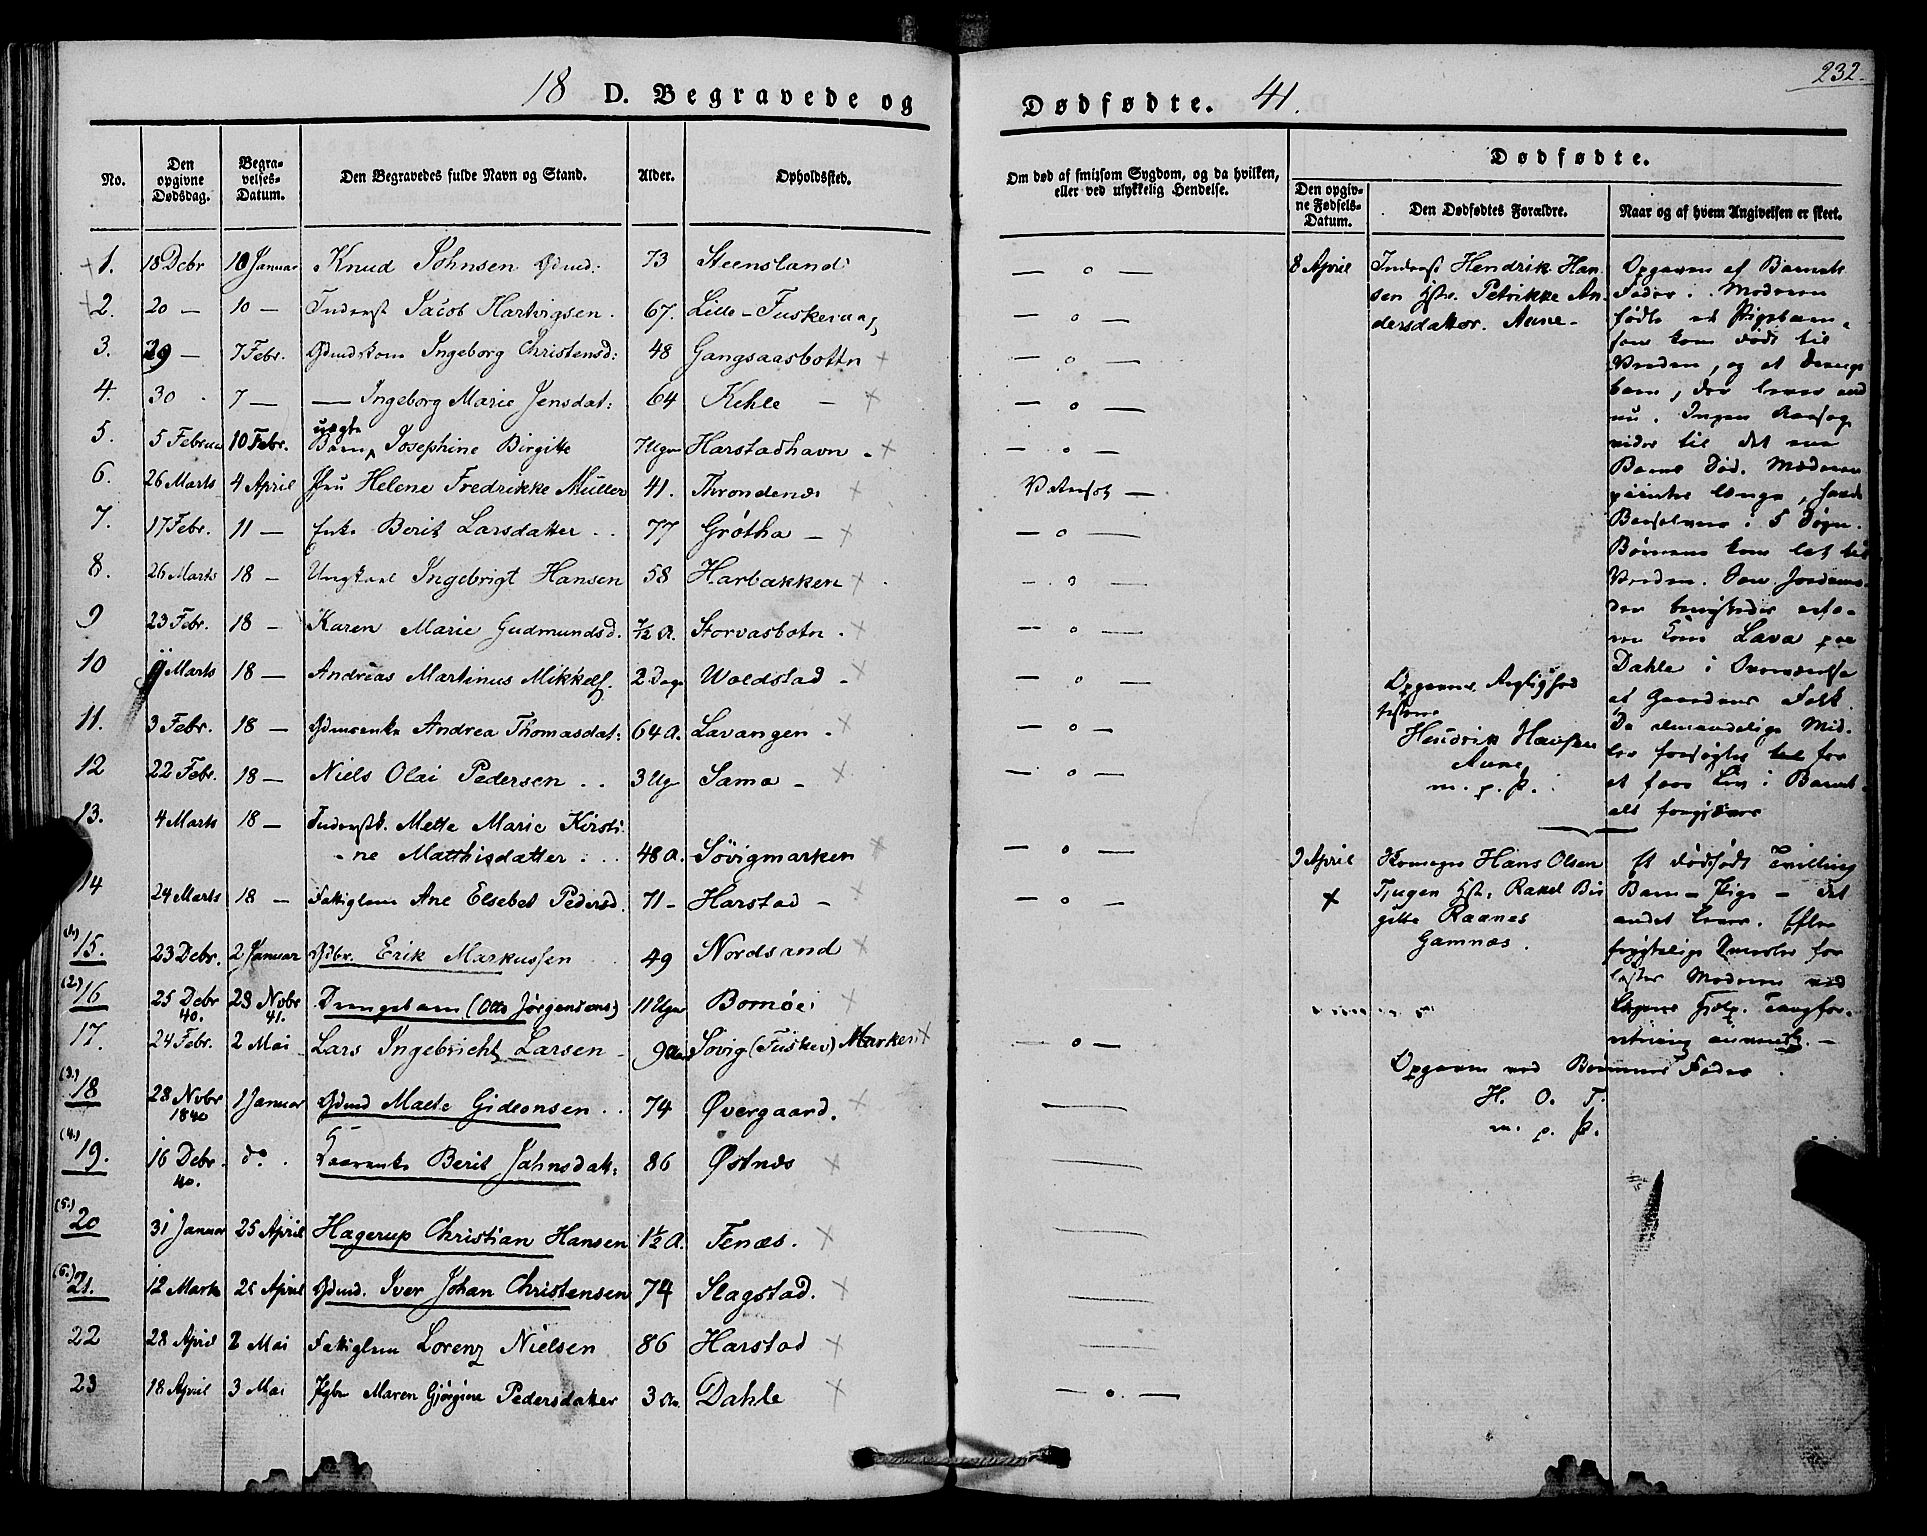 232.
18 D. Begravede og Dødfødte. 41.
No. Den opgivne Dødsdag. Begravelses-Datum. Den Begravedes fulde Navn og Stand. Alder. Opholdssted. Om død af smitsom Sygdom, og da hvilken, eller ved ulykkelig Hendelse. Dødfødte.
Den opgivne Fødsels-Datum. Den Dødfødtes Forældre. Naar og af hvem Angivelsen er skeet.
1. 18 Debr 10 Januar Knud Johnsen Gdmd: 73 Steensland — o —
2. 20 — 10 — Inderst Jacob Hartvigsen. 67. Lille-Fuskevaag — o —
3. 29 — 7 Febr. Gdmdskone Ingeborg Christensd: 48 Gangsaasbottn — o —
4. 30 7 — — Ingeborg Marie Jensdat: 64 Kehle — — o —
5. 5 Februar 10 Febr. uægte Barn Josephine Birgitte 7 Ugr Harstadhavn — o —
6. 26 Marts 4 April Fru Helene Fredrikke Müller 41. Throndenæs Vatersot —
7. 17 Febr. 11 — Enke Berit Larsdatter 77 Grøtha — — o —
8. 26 Marts 18 — Ungkarl Ingebrigt Hansen 58 Harbakken — o —
9 23 Febr. 18 — Karen Marie Gudmundsd. 7/12 A. Storvasbotn. — o —
10 Marts 18 — Andreas Martinus Mikkels. 2 Dage Woldstad — — o —
11. 3 Febr. 18 — Andrea Thomasdat: 64 A. Lavangen — — o —
12 22 Febr. 18 — Niels Olai Pedersen 3 Ug Sama — — o —
13. 4 Marts 18 — Inderstk. Mette Marie Kirsti
ne Matthisdatter 48 A. Søvigmarken — o —
14 24 Marts 18 — Fattiglem Ane Elsebet Pedersd. 71 — Harstad — — o —
(1.) 15. 23 Debr. 2 Januar Gdbr. Erik Markussen 49 Nordsand
(2.) 16 25 Debr 40. 23 Novbr 41. Drengebarn (Otto Jørgensens) 11 Uger Bomøe
17. 24 Febr. 2 Mai Lars Ingebricht Larsen 9 Søvig (Fuskev) Marken — o —
(3.) 18 28 Novbr 1840 1 Januar Gdmd Malte Gideonsen 74 Øvergaard. —
(4.) 19. 16 Debr. 40. do. Berit Jahnsdat: 86 Østnæs —
(5.) 20 31 Januar 25 April Hagerup Christian Hansen 1½ A. Fenæs. —
(6.) 21. 12 Marts 25 April Gdmd. Iver Johan Christensen 74 Slagstad. —
22 28 April 2 Mai Fattiglem Lorenz Nielsen 86 Harstad —
23 18 April 3 Mai Pgbn Maren Gjørgine Pedersdatter 3 Dahle — o —
8 April Inderst Hendrik Han
sen Hstr. Petrikke An
dersdatter. Aune —
Opgavens Rigtighed
testerer
Hendrik Hansen
Aune
m. p. P.
Opgaven af Barnets
Fader. Moderen
fødte et Pigebarn,
som kom dødt til
Verden, og et Drenge
barn, der lever end
nu. Ingen Aarsag
vides til det ene
Barns Død. Moderen
længe, havde
Barselveer i 5 Døgn.
Børnene kom let til
Verden. Som Jordemo
der benyttedes
Lava paa
Dahle i Overværelse
af Gaardens Folk.
De almindelige Mid
ler forsøgtes for
at faae Liv i Barnet
alt forgjæves
9 April Hans Olsen
Tjugen Hst. Rakel Bir
gitte Raanes
Gamnæs.
Et dødfødt Tvilling
Barn — Pige — Det
andet lever. Efter
frygtelige for
løstes Moderen ved
Lægens Hjelp. Tangfor
retning
Opgaven ved Barnets Fader
H. O. T.
m. p. P.